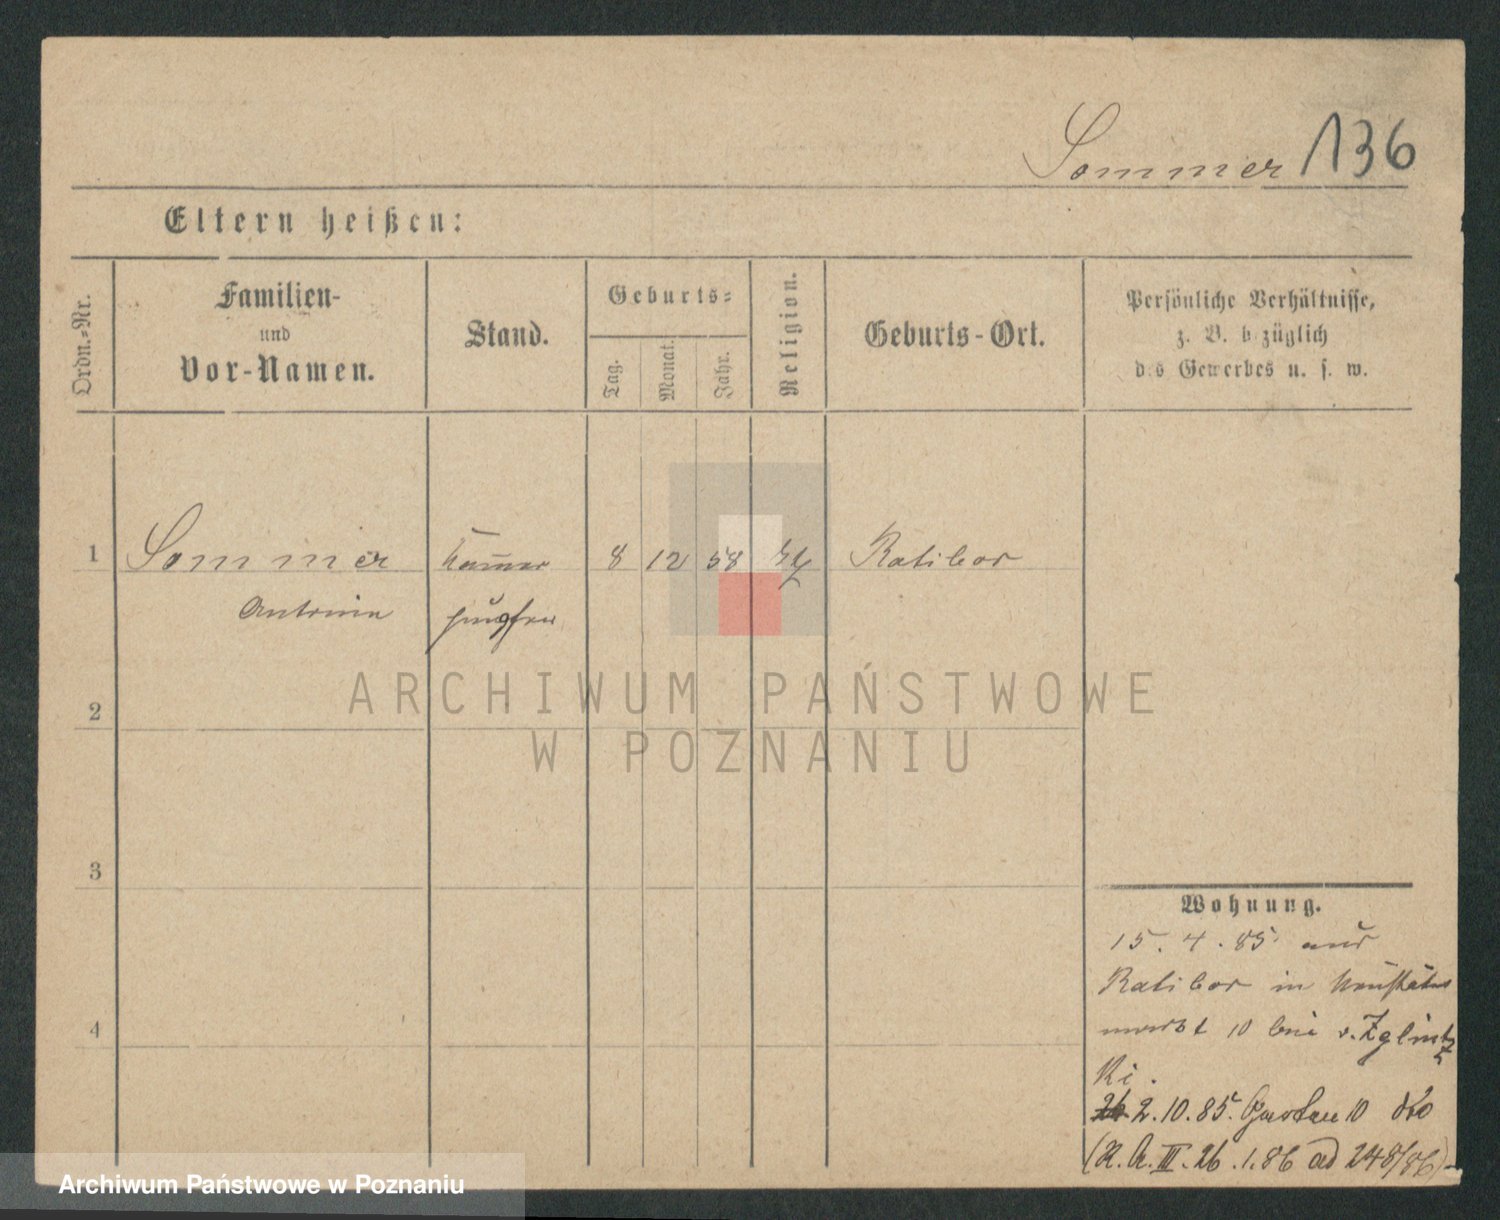 Sommer 136
Eltern heißen:
Ordn.-Nr.
Familien-
und
Vor-Namen.
Stand.
Geburts-
Tag.
Monat.
Jahr.
Religion.
Geburts-Ort.
Persönliche Verhältnisse,
z. B. bezüglich
des Gewerbes u. s. w.
1 Sommer Kammer 8 12 58 Ratibor
jungfer
2
3
4
ARCHIWUM PAŃSTWOWE
W POZNANIU
Wohnung.
15. 4. 85 aus
Ratibor in Neustädter
markt 10 bei v. Zglinitzki.
2. 10. 85. Garten 10
(K. A. III. 26. 1. 86 ad 248/86)
Archiwum Państwowe w Poznaniu